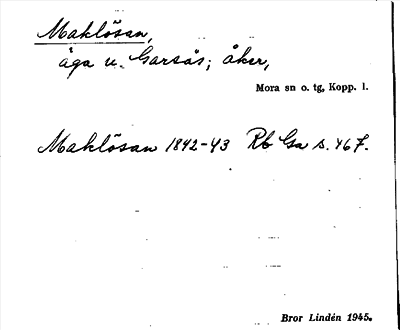 Maklösan,
äga u. Garsås; åker,
Mora sn o. tg, Kopp. l.
Maklösan 1842-43 Rb Ga s. 467.
Bror Lindén 1945.